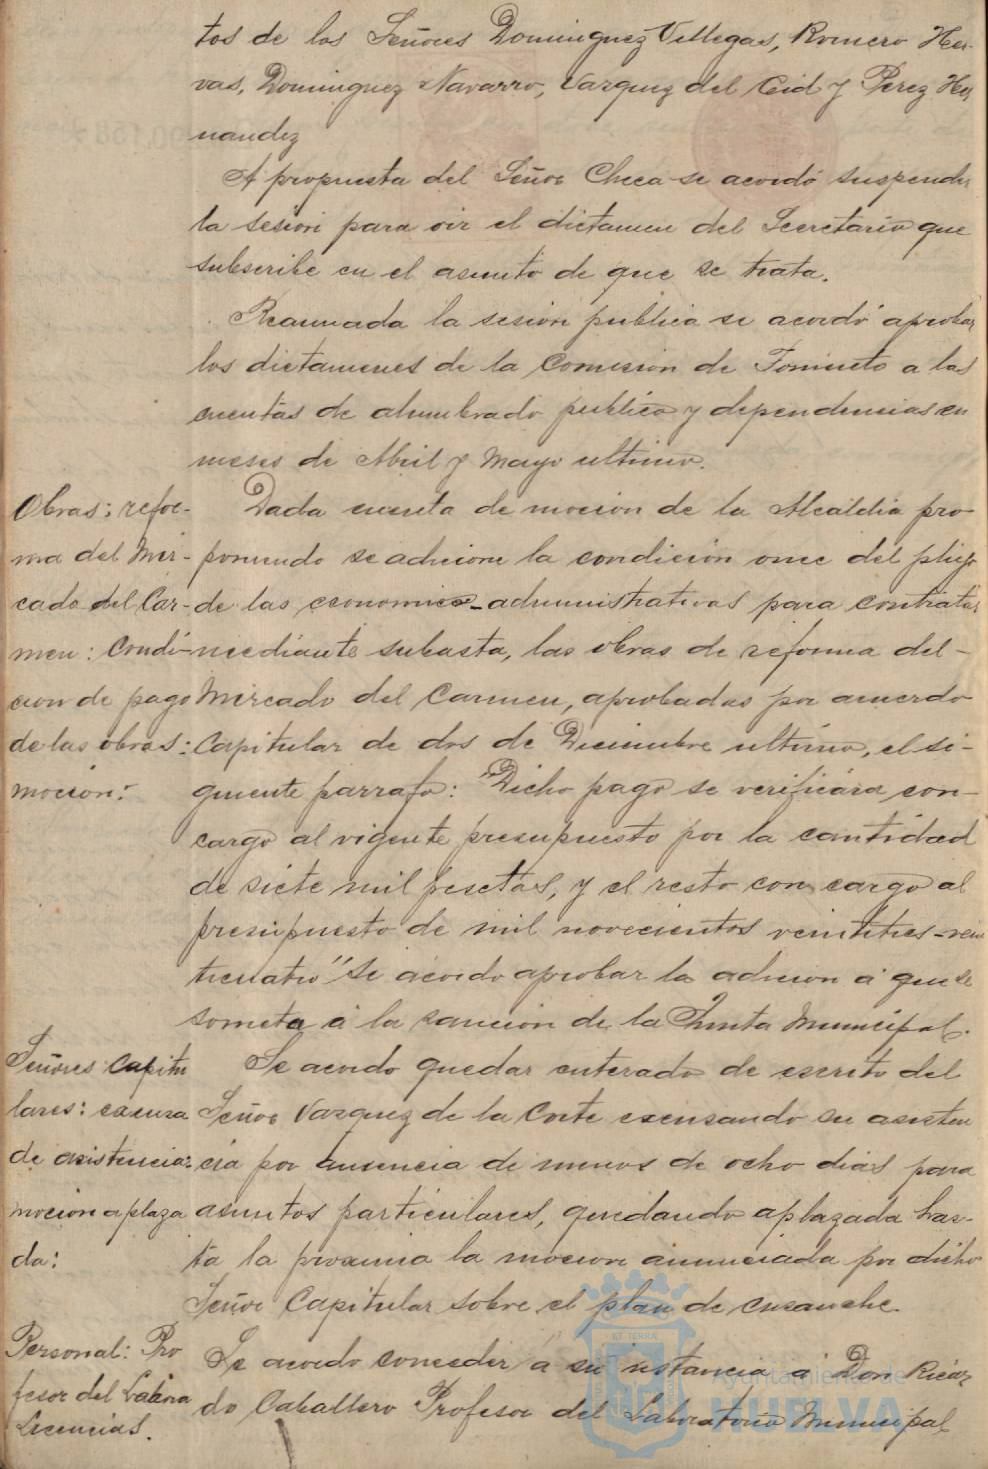 tos de los Señores Dominguez Villegas, Romero Her-
vas, Dominguez Navarro, Vazquez del Cid y Perez Her
nandez
A propuesta del Señor Checa se acordó suspender
la sesion para oir el dictamen del Secretario que
subscribe en el asunto de que se trata.
Reanudada la sesion publica se acordó aprobar
los dictamenes de la Comision de Fomento a las
cuentas de alumbrado publico y dependencias en
meses de Abril y Mayo ultimo.
Obras: refor-
ma del Mer-
cado del Car-
men: Condi-
cion de pago
de las obras:
mocion:
Dada cuenta de mocion de la Alcaldia pro-
poniendo se adicione la condición once del pliego
de las economico-administrativas para contratar
mediante subasta, las obras de reforma del-
Mercado del Carmen, aprobadas por acuerdo
Capitular de dos de Diciembre ultimo, el si-
guiente parrafo: "Dicho pago se verificára con-
cargo al vigente presupuesto por la cantidad
de siete mil pesetas, y el resto con cargo al
presupuesto de mil novecientos veintitres-vein
ticuatro" se acordo aprobar la adicion á que se
someta á la sancion de la Junta Municipal.
Señores Capitu
lares: excusa
de asistencia:
mocion aplaza
da:
Se acordo quedar enterado de escrito del
Señor Vazquez de la Corte excusando su asisten
cia por ausencia de menos de ocho dias para
asuntos particulares, quedando aplazada has-
ta la proxima la mocion anunciada por dicho
Señor Capitular sobre el plan de ensanche.
Personal: Pro
fesor del Labora
Licencias.
Se acordo conceder á su instancia á Don Ricar
do Caballero Profesor del Laboratorio Municipal
Ayuntamiento de
HUELVA